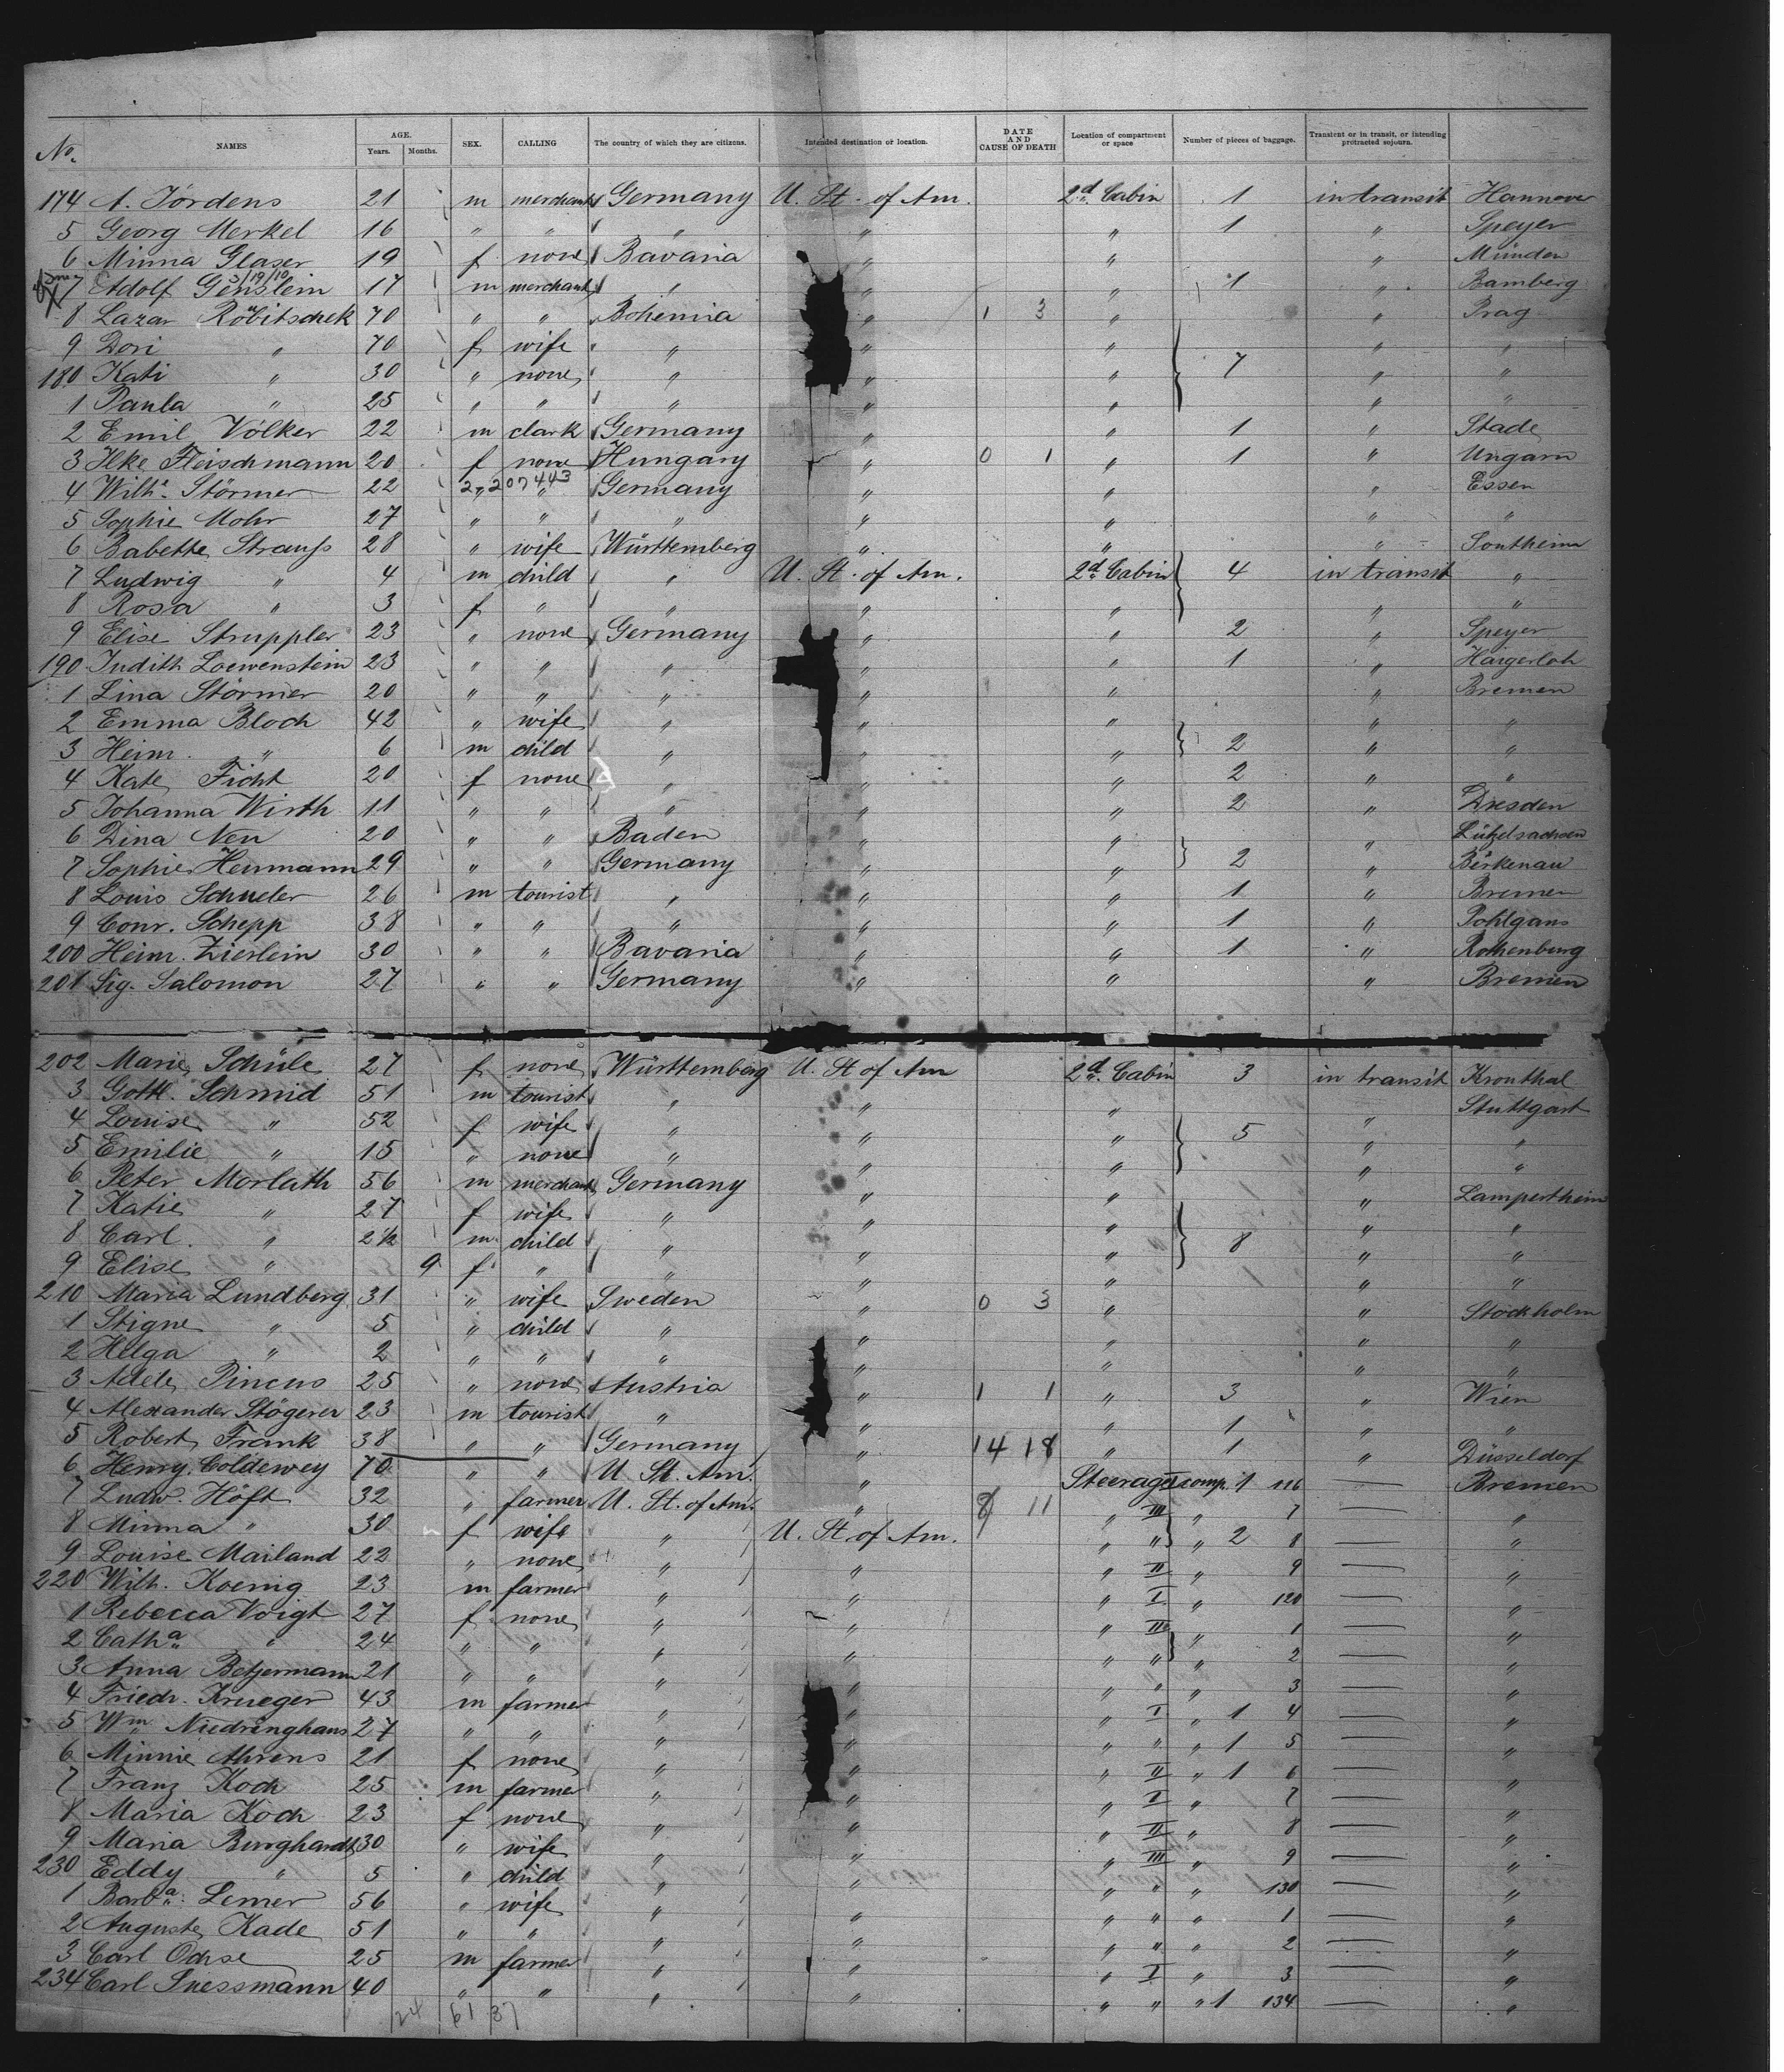 No. NAMES AGE. Years. Months. SEX. CALLING The country of which they are citizens. Intended destination or location. DATE AND CAUSE OF DEATH Location of compartment or space Number of pieces of baggage. Transient or in transit, or intending protracted sojourn.
174 A. Jördens 21 m merchant Germany U. St. of Am. 2d Cabin 1 in transit Hannover
5 Georg Merkel 16 " " " " " 1 " Speyer
6 Minna Glaser 19 f none Bavaria " " " Münden
3/19/10
7 Adolf Genslein 17 m merchant " " " 1 " Bamberg
8 Lazar Röbitschek 70 " " Bohemia " 1 3 " " Prag
9 Dori " 70 f wife " " " " "
180 Kati " 30 " none " " " 7 " "
1 Paula " 25 " " " " " " "
2 Emil Völker 22 m clark Germany " " 1 " Stade
3 Ilke Fleischmann 20 f none Hungary " 0 1 " 1 " Ungarn
4 Wilhe. Störmer 22 " 2-207443 " Germany " " " Essen
5 Sophie Mohr 27 " " " " " " "
6 Babette Strauss 28 " wife Württemberg " " " Sontheim
7 Ludwig " 4 m child " U. St. of Am. 2d Cabin 4 in transit "
8 Rosa " 3 f " " " " " "
9 Elise Struppler 23 " none Germany " " 2 " Speyer
190 Judith Loewenstein 23 " " " " " 1 " Haigerloh
1 Lina Störmer 20 " " " " " " Bremen
2 Emma Bloch 42 " wife " " " " "
3 Heinr. " 6 m child " " " 2 " "
4 Kate Ficht 20 f none " " " 2 " "
5 Johanna Wirth 11 " " " " " 2 " Dresden
6 Dina Neu 20 " " Baden " " " Lützelsachsen
7 Sophie Heumann 29 " " Germany " " 2 " Birkenau
8 Louis Schueler 26 m tourist " " " 1 " Bremen
9 Conr. Schepp 38 " " " " " 1 " Pohlgans
200 Heinr. Zierlein 30 " " Bavaria " " 1 " Rothenburg
201 Sig. Salomon 27 " " Germany " " " Bremen
202 Marie Schüle 27 f none Württemberg U. St of Am 2d. Cabin 3 in transit Kronthal
3 Gottl. Schmid 51 m tourist " " " " Stuttgart
4 Louise " 52 f wife " " " 5 " "
5 Emilie " 15 " none " " " " "
6 Peter Morlath 56 m merchant Germany " " " Lampertheim
7 Katie " 27 f wife " " " " "
8 Carl " 2½ m child " " " 8 " "
9 Elise " 9 f " " " " " "
210 Maria Lundberg 31 " wife Sweden " 0 3 " " Stockholm
1 Stigne " 5 " child " " " " "
2 Helga " 2 " " " " " " "
3 Adele Pincus 25 " none Austria " 1 1 " 3 " Wien
4 Alexander Stögerer 23 m tourist " " " 1 " "
5 Robert Frank 38 " " Germany " 14 18 " 1 " Düsseldorf
6 Henry Coldewey 70 " " U. St. Am. " Steerage I comp. 1 116 — Bremen
7 Ludw. Höft 32 " farmer U. St. of Am. " 8 11 " III " 7 — "
8 Minna " 30 f wife " U. St of Am. " " " 2 8 — "
9 Louise Mailand 22 " none " " " II " 9 — "
220 Wilh. Koenig 23 m farmer " " " I " 120 — "
1 Rebecca Voigt 27 f none " " " III " 1 — "
2 Catha. " 24 " " " " " " " 2 — "
3 Anna Betjermann 21 " " " " " " " 3 — "
4 Friedr. Krueger 43 m farmer " " " I " 1 4 — "
5 Wm. Niedringhaus 27 " " " " " " " 1 5 — "
6 Minnie Ahrens 21 f none " " " II " 1 6 — "
7 Franz Koch 25 m farmer " " " I " 7 — "
8 Maria Koch 23 f none " " " II " 8 — "
9 Maria Burghardt 30 " wife " " " III " 9 — "
230 Eddy " 5 " child " " " " " 130 — "
1 Barba. Lemer 56 " wife " " " " " 1 — "
2 Auguste Kade 51 " " " " " " " 2 — "
3 Carl Ochse 25 m farmer " " " I " 3 — "
234 Carl Suessmann 40 " " " " " " " 1 134 — "
24 61 37